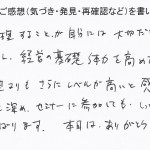 ご感想（気づき・発見・再確認など）を書い
理することが自船には大切だ
し、経営の基礎体力を高め
よりもさらにレベルが高いと感
深め、セミナーに参加しても、し
なります。 本日は、ありがとう